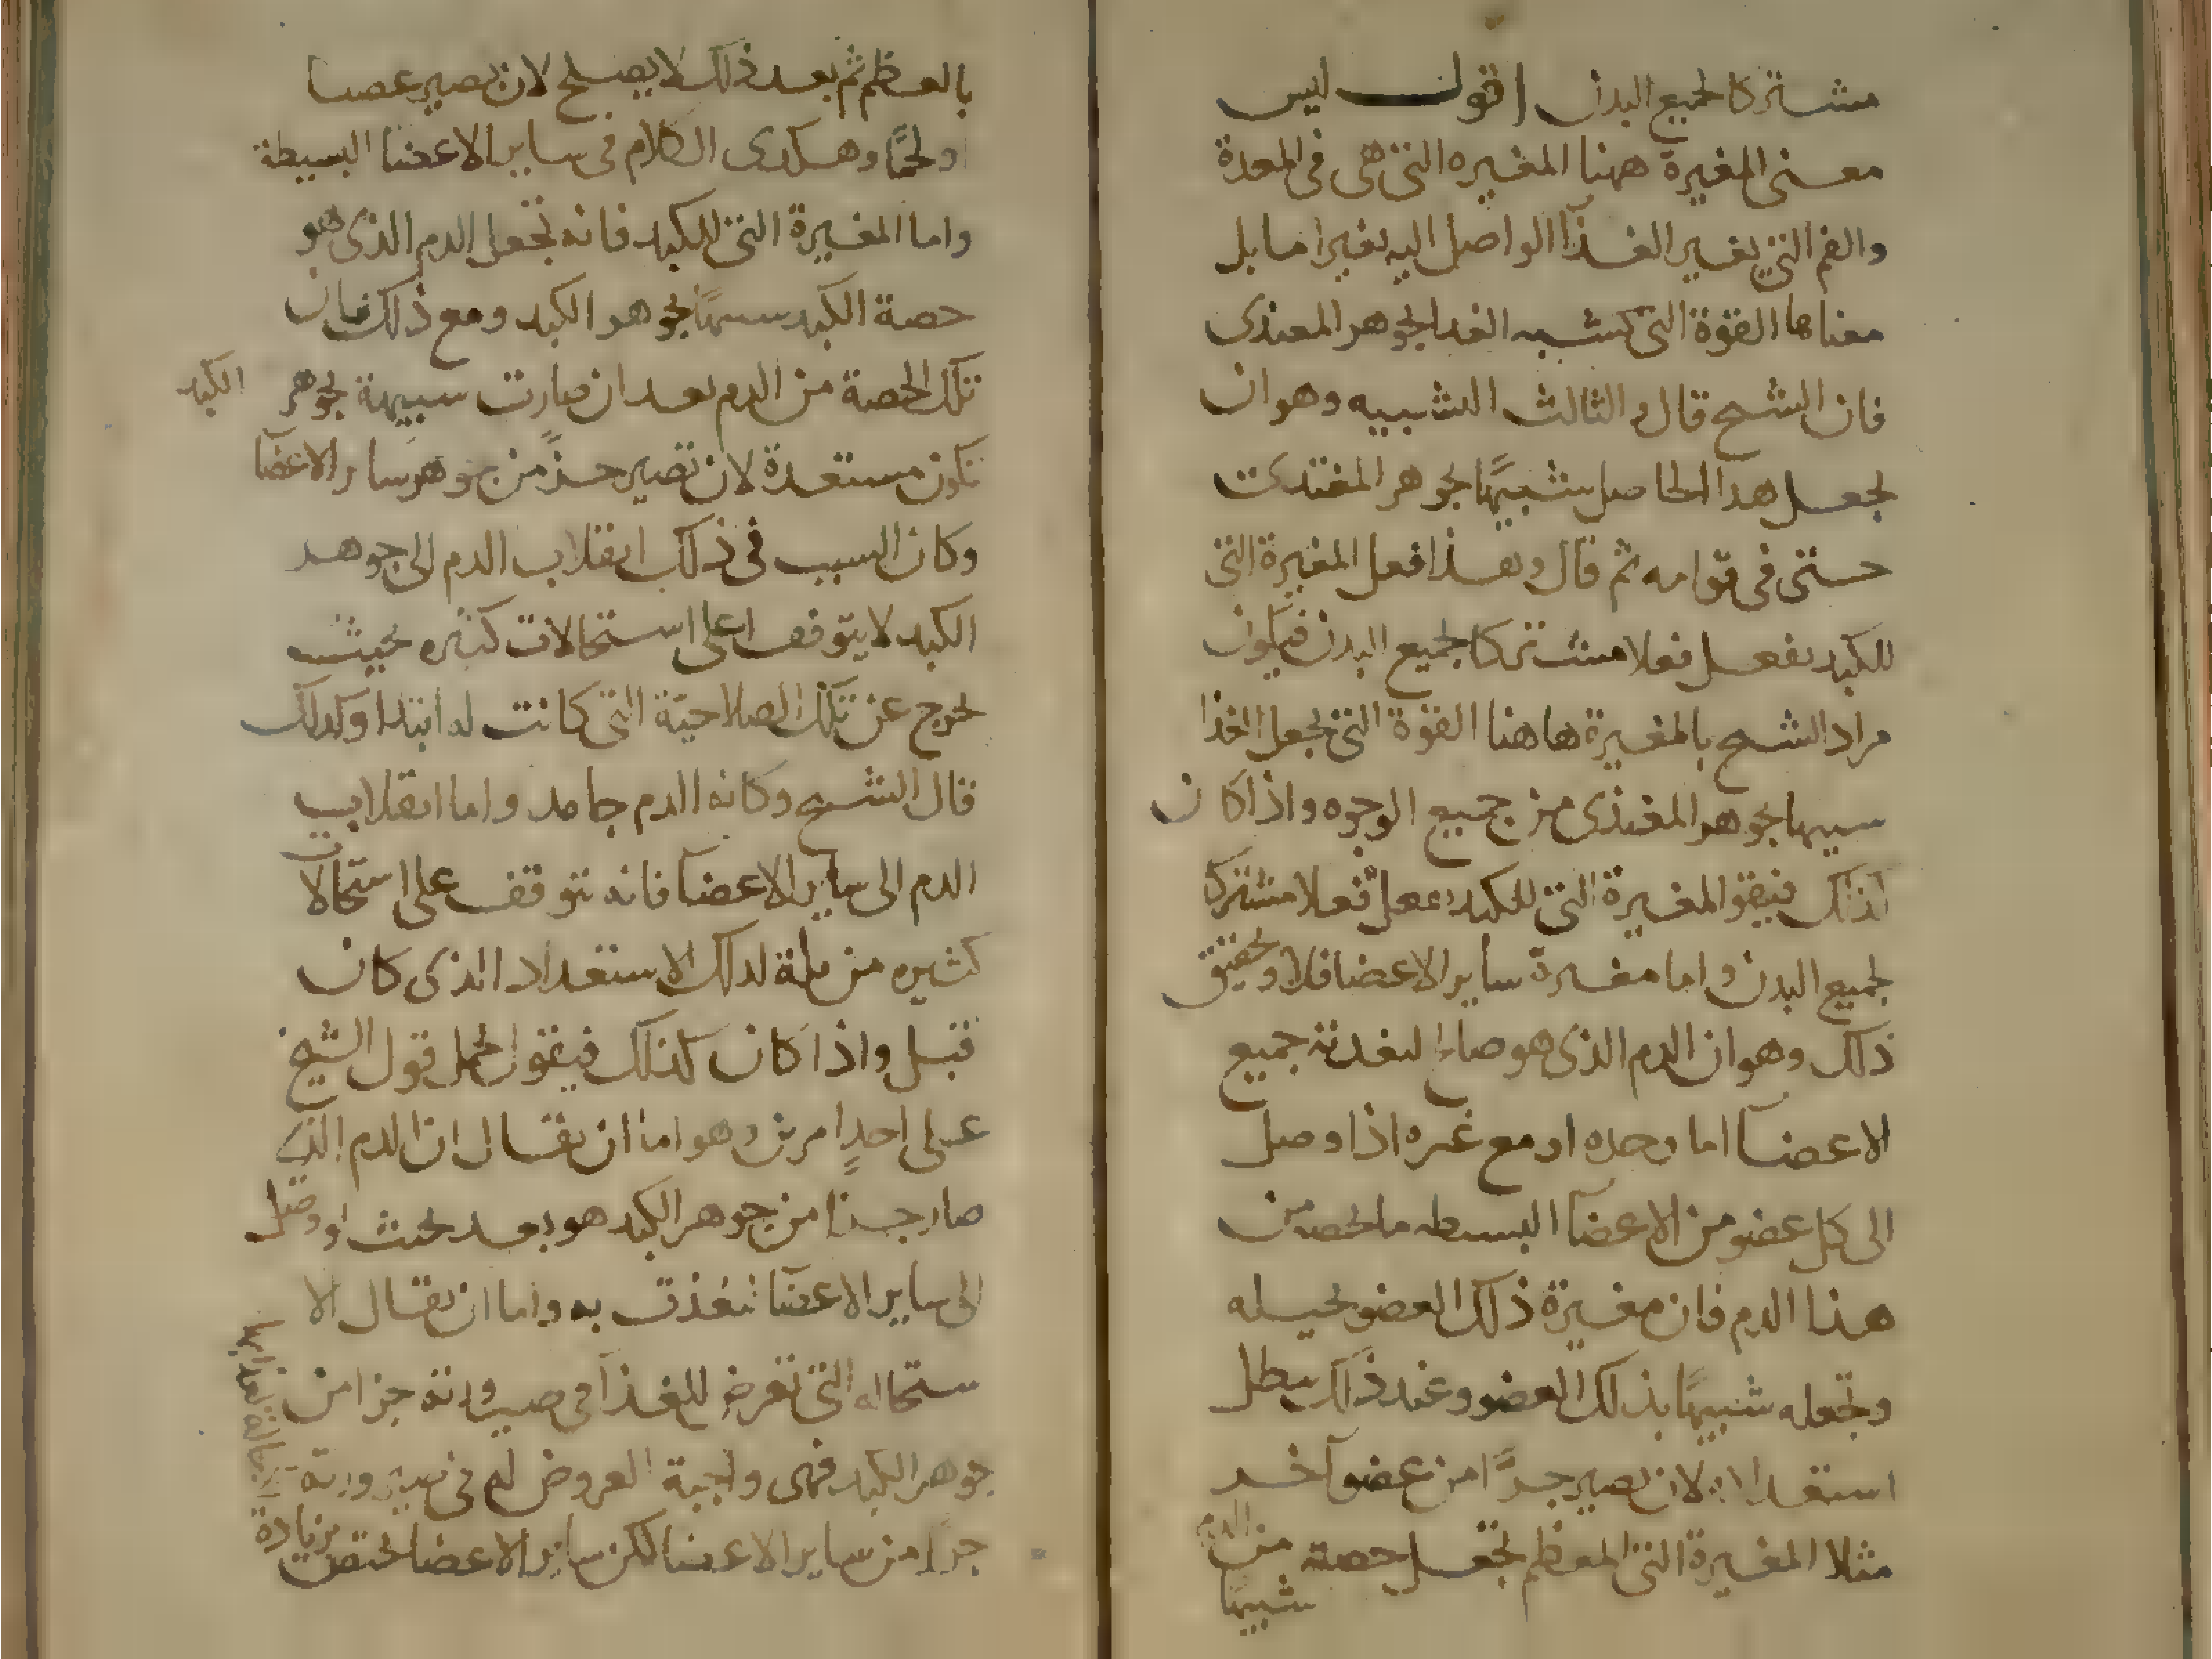 مشتركا لجميع البدن اقول ليس
معنى المغيرة ههنا المغيره التى هى فى المعدة
والفم التى تغير الغذآ الواصل اليه تغيرا ما بل
معناها القوة التى تشبه الغدا بجوهر المغتذى
فان الشيح قال والثالث التشبيه وهو ان
يجعل هدا الحاصل شبيهًا بجوهر المغتدى
حتى فى قوامه ثم قال وهذا فعل المغيرة التى
للكبد يفعل فعلا مشتركا لجميع البدن فيكون
مراد الشيح بالمغيرة هاهنا القوة التى تجعل الغذا
سبيها بجوهر المغتذى من جميع الوجوه واذا كان
كذلك فنقول المغيرة التى للكبد تفعل فعلا مشتركا
لجميع البدن واما مغيرة ساير الاعضا فلا وتحقيق
ذلك وهو ان الدم الذى هو صالح لتغدية جميع
الاعضآ اما وحده او مع غيره اذا وصل
الى كل عضو من الاعضآ البسيطه ما يخصه من
هذا الدم فان مغيرة ذلك العضو تحيله
وتجعله شبيهًا بذلك العضو وعند ذلك يبطل
استعداده لان يصير جزًا من عضو آخر
مثلا المغيرة التى للعظم تجعل حصته من الدم
شبيهًا
بالعظم ثم بعد ذلك لا يصلح لان يصير عصبا
او لحمًا وهكدى الكلام فى ساير الاعضا البسيطة
واما المغيرة التى للكبد فانه تجعل الدم الذى هو
حصة الكبد سبيهًا بجوهر الكبد ومع ذلك فان
تلك الحصة من الدم بعد ان صارت سبيهة بجوهر الكبد
تكون مستعدة لان تصير جزًا من جوهر ساير الاعضآ
وكان السبب فى ذلك انقلاب الدم الى جوهر
الكبد لا يتوقف على استحالات كثيره بحيث
يخرج عن تلك الصلاحيّة التى كانت له ابتدا وكدلك
قال الشيح وكانه الدم جامد واما انقلاب
الدم الى ساير الاعضآ فانه يتوقف على استحالات
كثيره مزيلة لدلك الاستعداد الذى كان
قبل واذا كان كذلك فيقول يحمل قول الشيخ
على احد امرين وهو اما ان يقال ان الدم الذى
صار جزا من جوهر الكبد هو بعد بحيث لو وصل
الى ساير الاعضآ تغذت به واما ان يقال الا
ستحاله التى تعرض للغذآ فى صيرورته جزا من
جوهر الكبد فهى واجبة العروض له فى صيرورته
جزًا من ساير الاعضا لكن ساير الاعضا تختص بزيادة